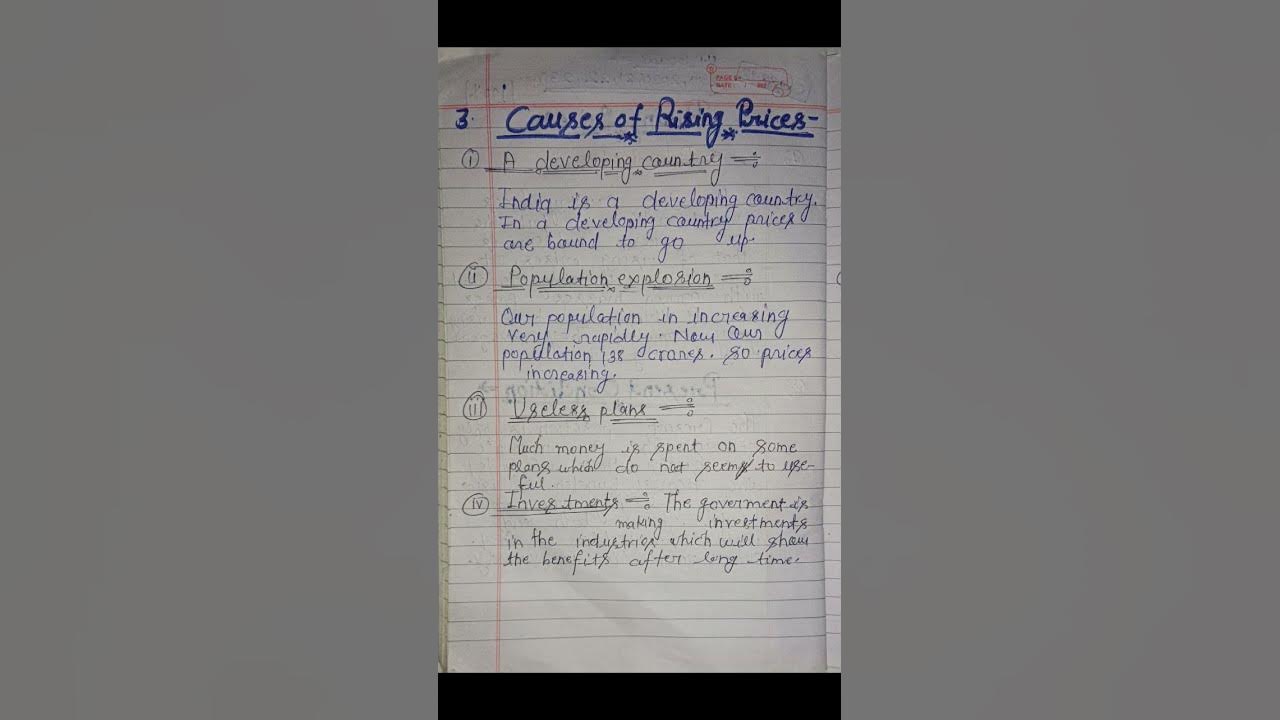 PAGE
DATE
3. Causes of Rising Prices-
(i) A developing country
India is a developing country.
In a developing country prices
are bound to go up.
(ii) Population explosion
Our population in increasing
very rapidly. Now Our
population 138 crores. So prices
increasing.
(iii) Useless plans
Much money is spent on some
plans which do not seem to use-
ful.
(iv) Investments The goverment is
making investments
in the industries which will show
the benefits after long time.